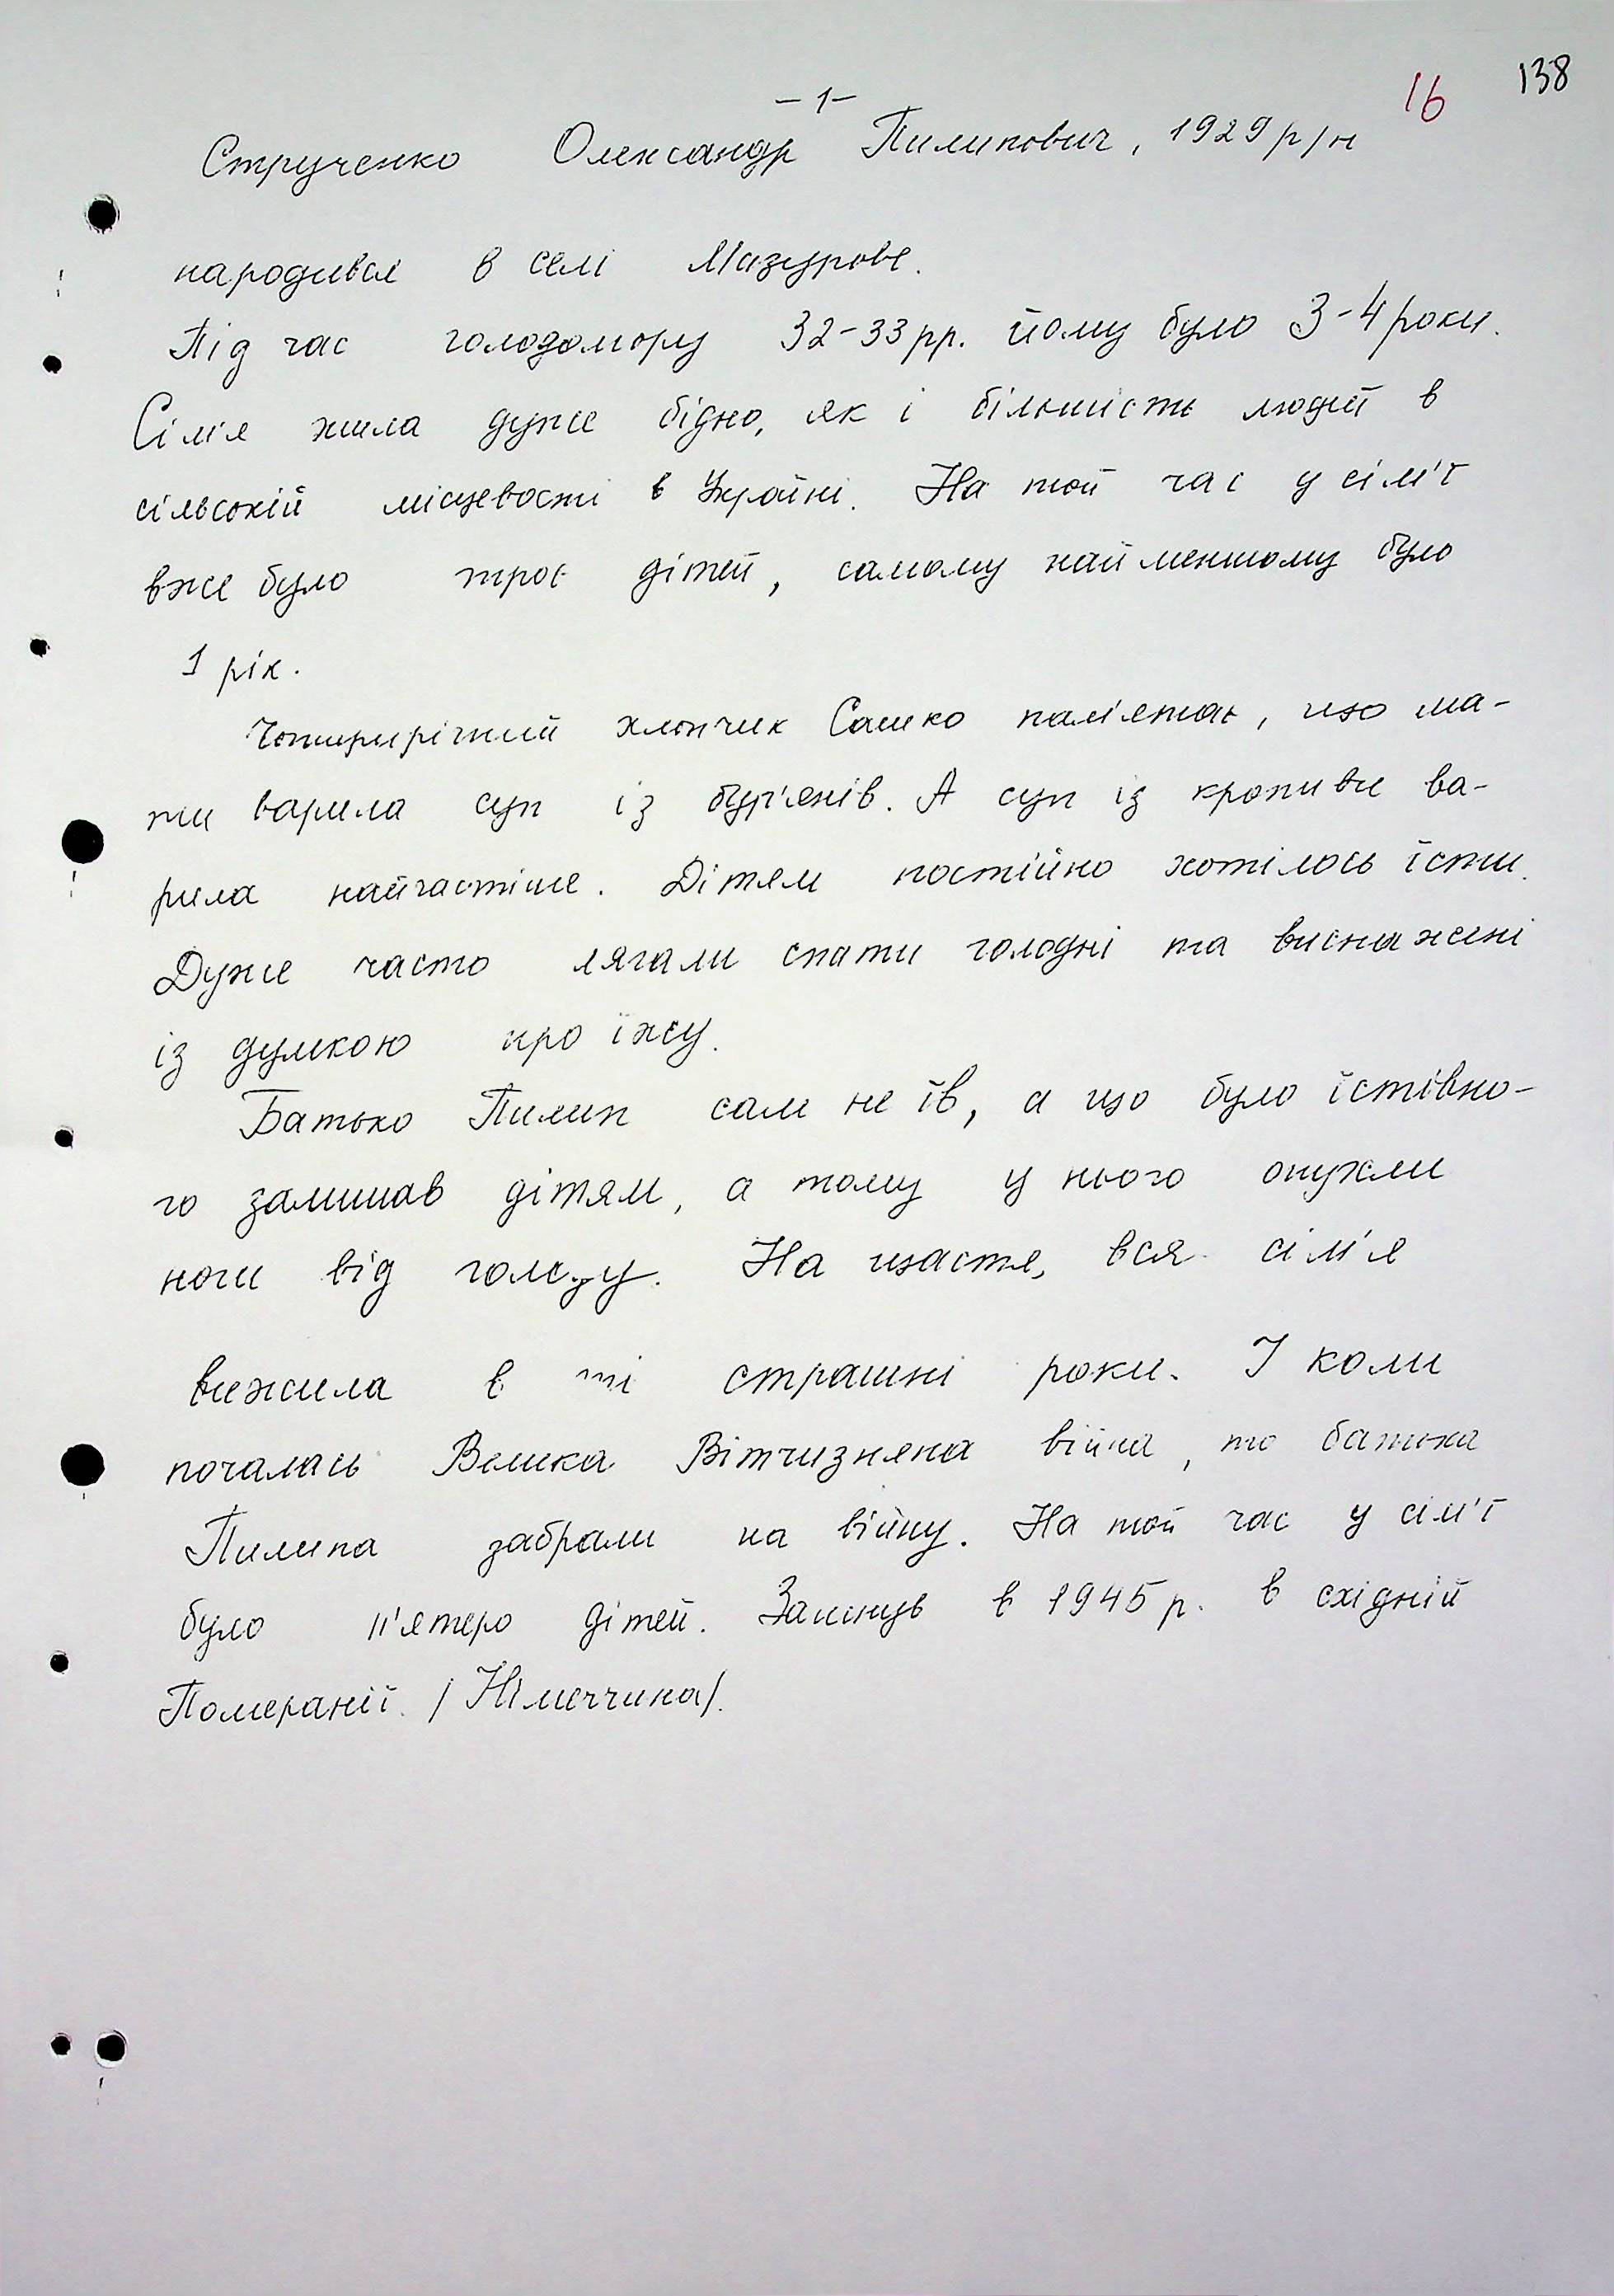 138
16
-1-
Струченко Олександр Пилипович, 1929 р/н
народився в селі Мазурове.
Під час голодомору 32-33 рр. йому було 3-4 роки.
Сім'я жила дуже бідно, як і більшість людей в
сільській місцевості в Україні. На той час у сім'ї
вже було троє дітей, самому найменшому було
1 рік.
Чотирирічний хлопчик Сашко пам'ятає, що ма-
ти варила суп із бур'янів. А суп із кропиви ва-
рила найчастіше. Дітям постійно хотілось їсти.
Дуже часто лягали спати голодні та виснажені
із думкою про їжу.
Батько Пилип сам не їв, а що було їстівно-
го залишав дітям, а тому у нього опухли
ноги від голоду. На щастя, вся сім'я
вижила в ті страшні роки. І коли
почалась Велика Вітчизняна війна, то батька
Пилипа забрали на війну. На той час у сім'ї
було п'ятеро дітей. Загинув в 1945 р. в східній
Померанії. /Німеччина/.